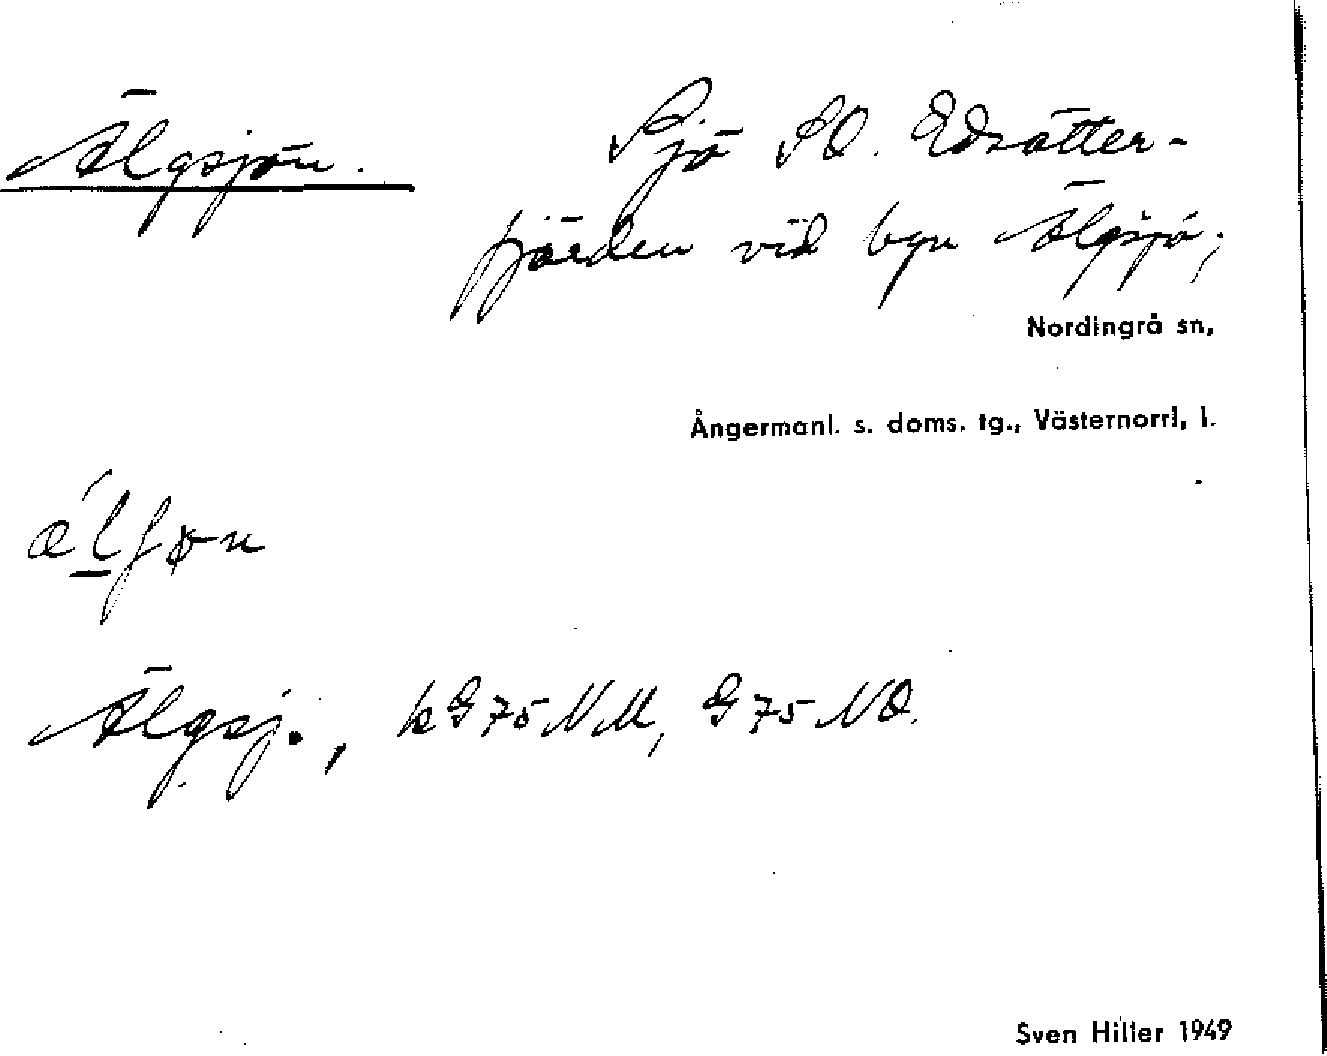 Älgsjön.
Sjö SO. Edsätter-
fjärden vid byn Älgsjö;
Nordingrå sn,
Ångermanl. s. doms. tg., Västernorrl. l.
Älgsj., k G75 NM, G75 NO.
Sven Hiller 1949